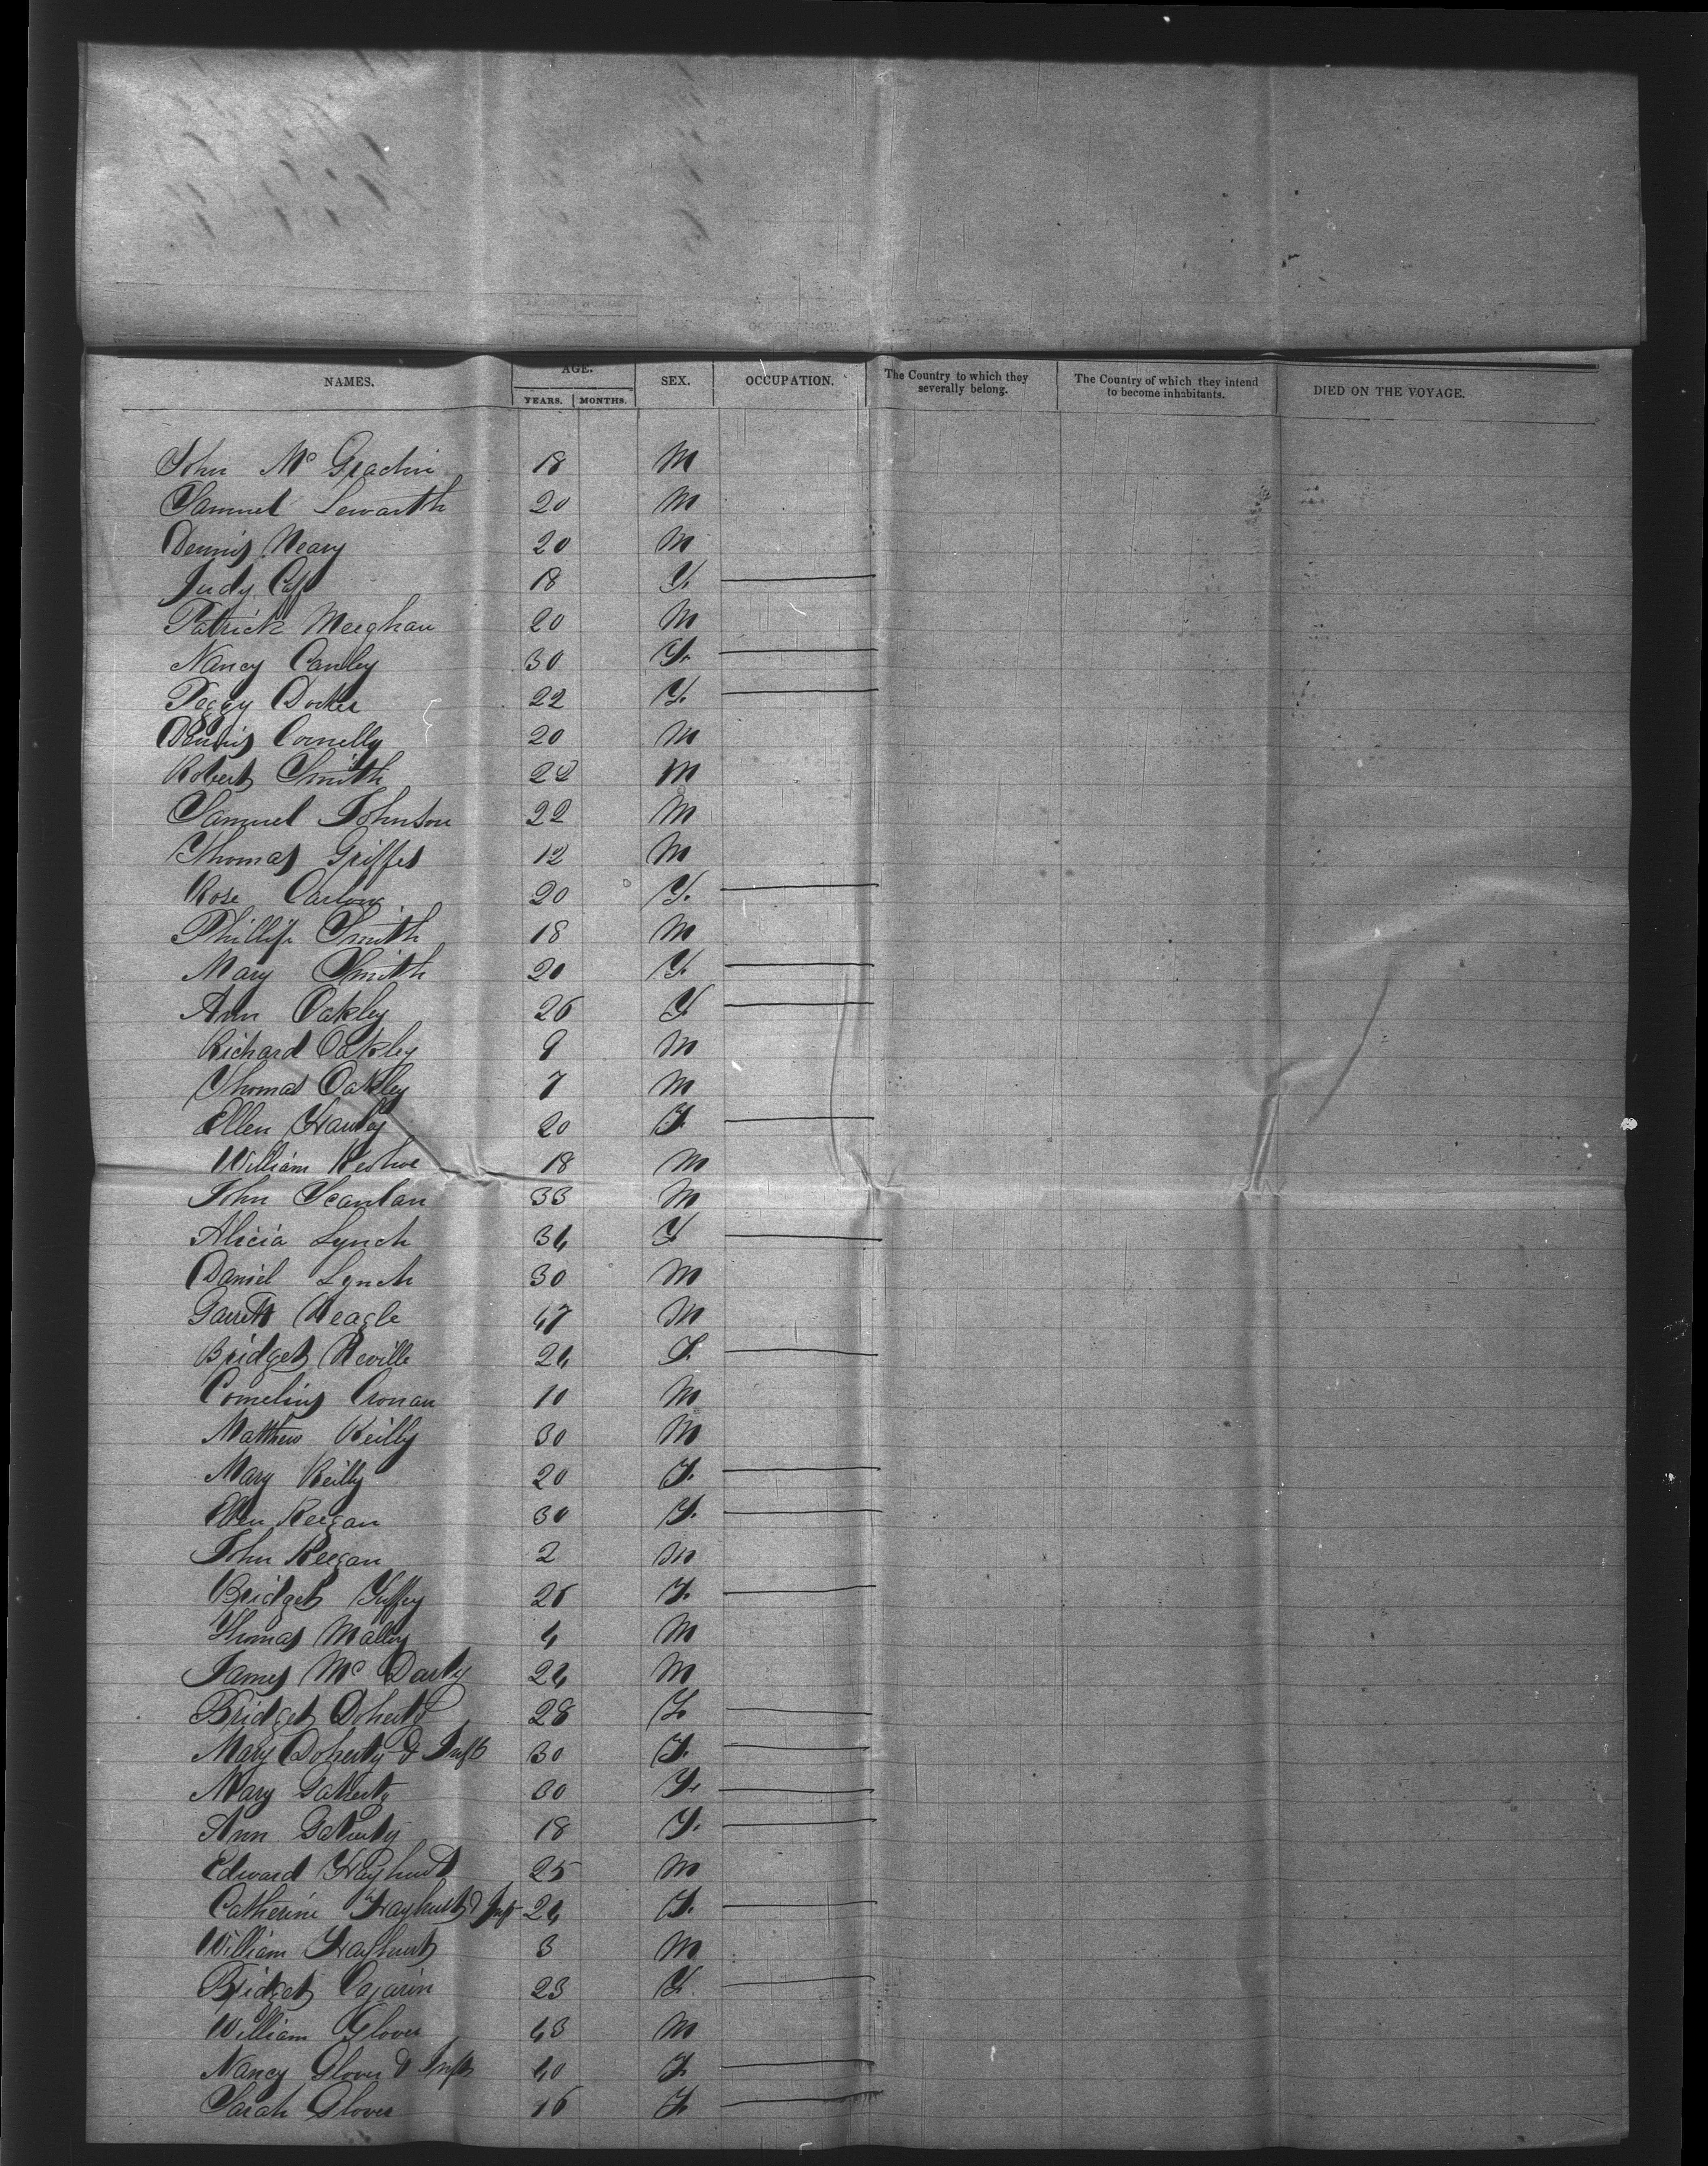 NAMES. AGE. SEX. OCCUPATION. The Country to which they severally belong. The Country of which they intend to become inhabitants. DIED ON THE VOYAGE.
YEARS. MONTHS.
John Mc 18 M
Samuel 20 M
Dennis Neary 20 M
Judy 18 F.
Patrick Meeghan 20 M
Nancy Canley 30 F.
Peggy 22 F.
Dennis Connelly 20 M
Robert Smith 22 M
Samuel Johnson 22 M
Thomas 12 M
Rose 20 F.
Phillip Smith 18 M
Mary Smith 20 F.
Ann Oakley 26 F
Richard Oakley 9 M
Thomas Oakley 7 M
Ellen Hanley 20 F.
William 18 M
John Scanlan 33 M
Alicia Lynch 34 F
Daniel Lynch 30 M
Garrett Neagle 47 M
Bridget Neville 24 F.
Cornelius Cronan 10 M
Matthew Reilly 30 M
Mary Reilly 20 F.
Ellen Keegan 30 F.
John Keegan 2 M
Bridget 26 F.
Thomas Malloy 4 M
James Mc 24 M
Bridget Doherty 28 F.
Mary Doherty & Inft 30 F.
Mary 30 F.
Ann 18 F.
Edward Hayhurst 25 M
Catherine Hayhurst & Inft 24 F.
William Hayhurst 3 M
Bridget 23 F.
William Glover 43 M
Nancy Glover & Inft 40 F.
Sarah Glover 16 F.